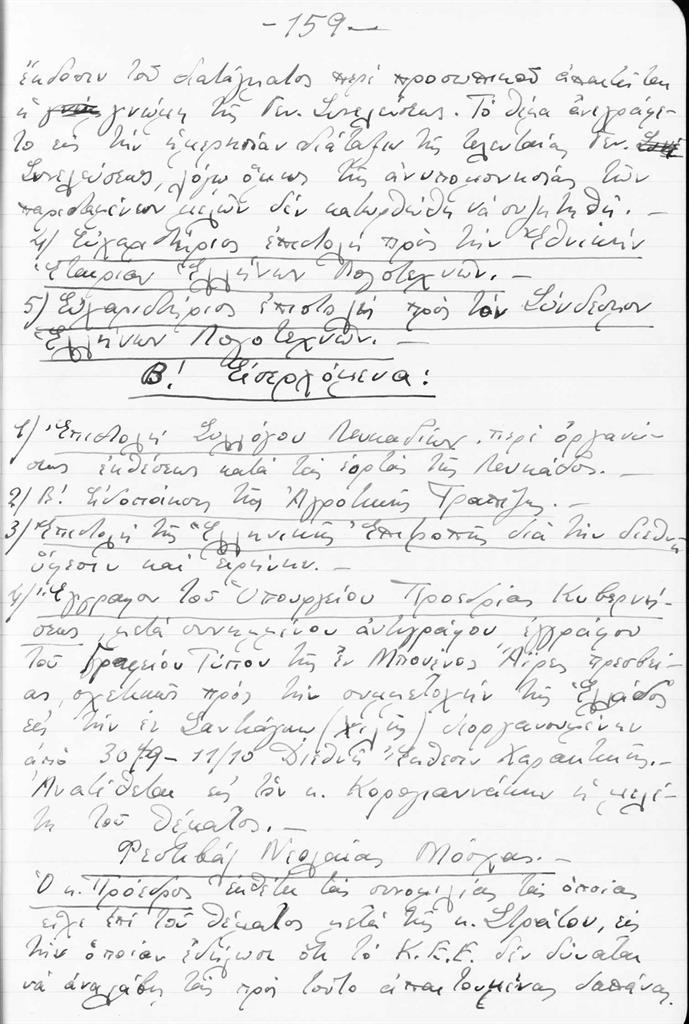 -159-
ἔκδοσιν τοῦ διατάγματος περί προσωπικοῦ ἀπαιτεῖται
ἡ γνώμη τῆς Γεν. Συνελεύσεως. Τό θέμα ἀνεγράφε-
το εἰς τήν ἡμερησίαν διάταξιν τῆς τελευταίας Γεν.
Συνελεύσεως, λόγῳ ὅμως τῆς ἀνυπομονησίας τῶν
παρισταμένων μελῶν δέν κατωρθώθη νά συζητηθῆ. -
4) Εὐχαριστήριος ἐπιστολή πρός τήν Ἐθνικήν
Ἑταιρίαν Ἑλλήνων Λογοτεχνῶν. -
5) Εὐχαριστήριος ἐπιστολή πρός τόν Σύνδεσμον
Ἑλλήνων Λογοτεχνῶν. -
Β! Εἰσερχόμενα:
1) Ἐπιστολή Συλλόγου Λευκαδίων περί ὀργανώ-
σεως ἐκθέσεως κατά τάς ἑορτάς τῆς Λευκάδος. -
2) Β! Εἰδοποίησις τῆς Ἀγροτικῆς Τραπέζης. -
3) Ἐπιστολή τῆς Ἑλληνικῆς Ἐπιτροπῆς διά τήν διεθνῆ
ὕφεσιν καί εἰρήνην. -
4) Ἔγγραφον τοῦ Ὑπουργείου Προεδρίας Κυβερνή-
σεως, μετά συνημμένου ἀντιγράφου ἐγγράφου
τοῦ Γραφείου Τύπου τῆς ἐν Μπουένος Ἄϊρες πρεσβεί-
ας, σχετικῶς πρός τήν συμμετοχήν τῆς Ἑλλάδος
εἰς τήν ἐν Σαντιάγκο (Χιλῆς) διοργανουμένην
ἀπό 30/9 - 11/10 Διεθνῆ Ἔκθεσιν Χαρακτικῆς. -
Ἀνατίθεται εἰς τόν κ. Κορογιαννάκην ἡ μελέ-
τη τοῦ θέματος. -
Φεστιβάλ Νεολαίας Μόσχας. -
Ὁ κ. Πρόεδρος ἐκθέτει τάς συνομιλίας τάς ὁποίας
εἶχε ἐπί τοῦ θέματος μετά τῆς κ. Στράτου, εἰς
τήν ὁποίαν ἐδήλωσε ὅτι τό Κ.Ε.Ε. δέν δύναται
νά ἀναλάβῃ τάς πρός τοῦτο ἀπαιτουμένας δαπάνας.